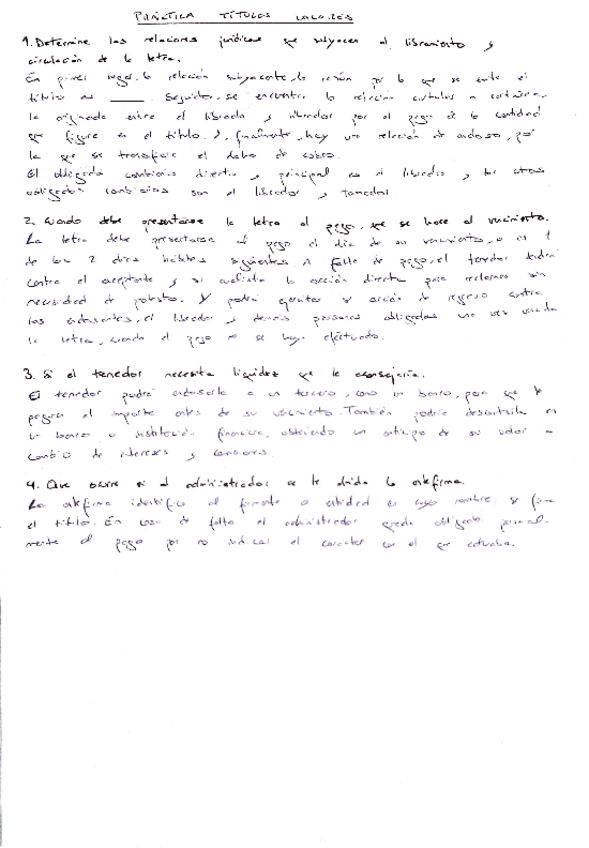 PRÁCTICA TÍTULOS VALORES
1. Determine las relaciones jurídicas que subyacen al libramiento y
circulación de la letra.
En primer lugar, la relación subyacente, la razón por la que se emite el
título Seguido, se encuentra la relación
la originada entre el librado y librador por el pago de la cantidad
que figure en el título. Y, finalmente, hay una relación de endoso, por
la que se transfiere el de cobro.
El obligado cambiario directo y principal es el librado y los otros
obligados cambiarios son el librador y tomador
2. Cuando debe presentarse la letra al pago, que se hace al vencimiento.
La letra debe presentarse al pago el día de su vencimiento, o en 1
de los 2 días hábiles siguientes. A falta de pago, el tenedor tendrá
contra el aceptante y su avalista la acción directa para reclamar sin
necesidad de protesto. Y podrá ejercitar su acción de regreso contra
los endosantes, el librador y demás personas obligadas una vez vencida
la letra, cuando el pago no se haya efectuado.
3. Si el tenedor necesita liquidez que le aconsejaría.
El tenedor podrá endosarla a un tercero, como un banco, para que le
pague el importe antes de su vencimiento. También podría descontarla en
un banco o institución financiera, obteniendo un anticipo de su valor a
cambio de intereses y comisiones.
4. Que ocurre si al administrador se le olvida la antefirma.
La antefirma identifica al firmante o entidad en cuyo nombre se firma
el título. En caso de falta el administrador queda obligado personal-
mente al pago por no indicar el carácter con el que actuaba.